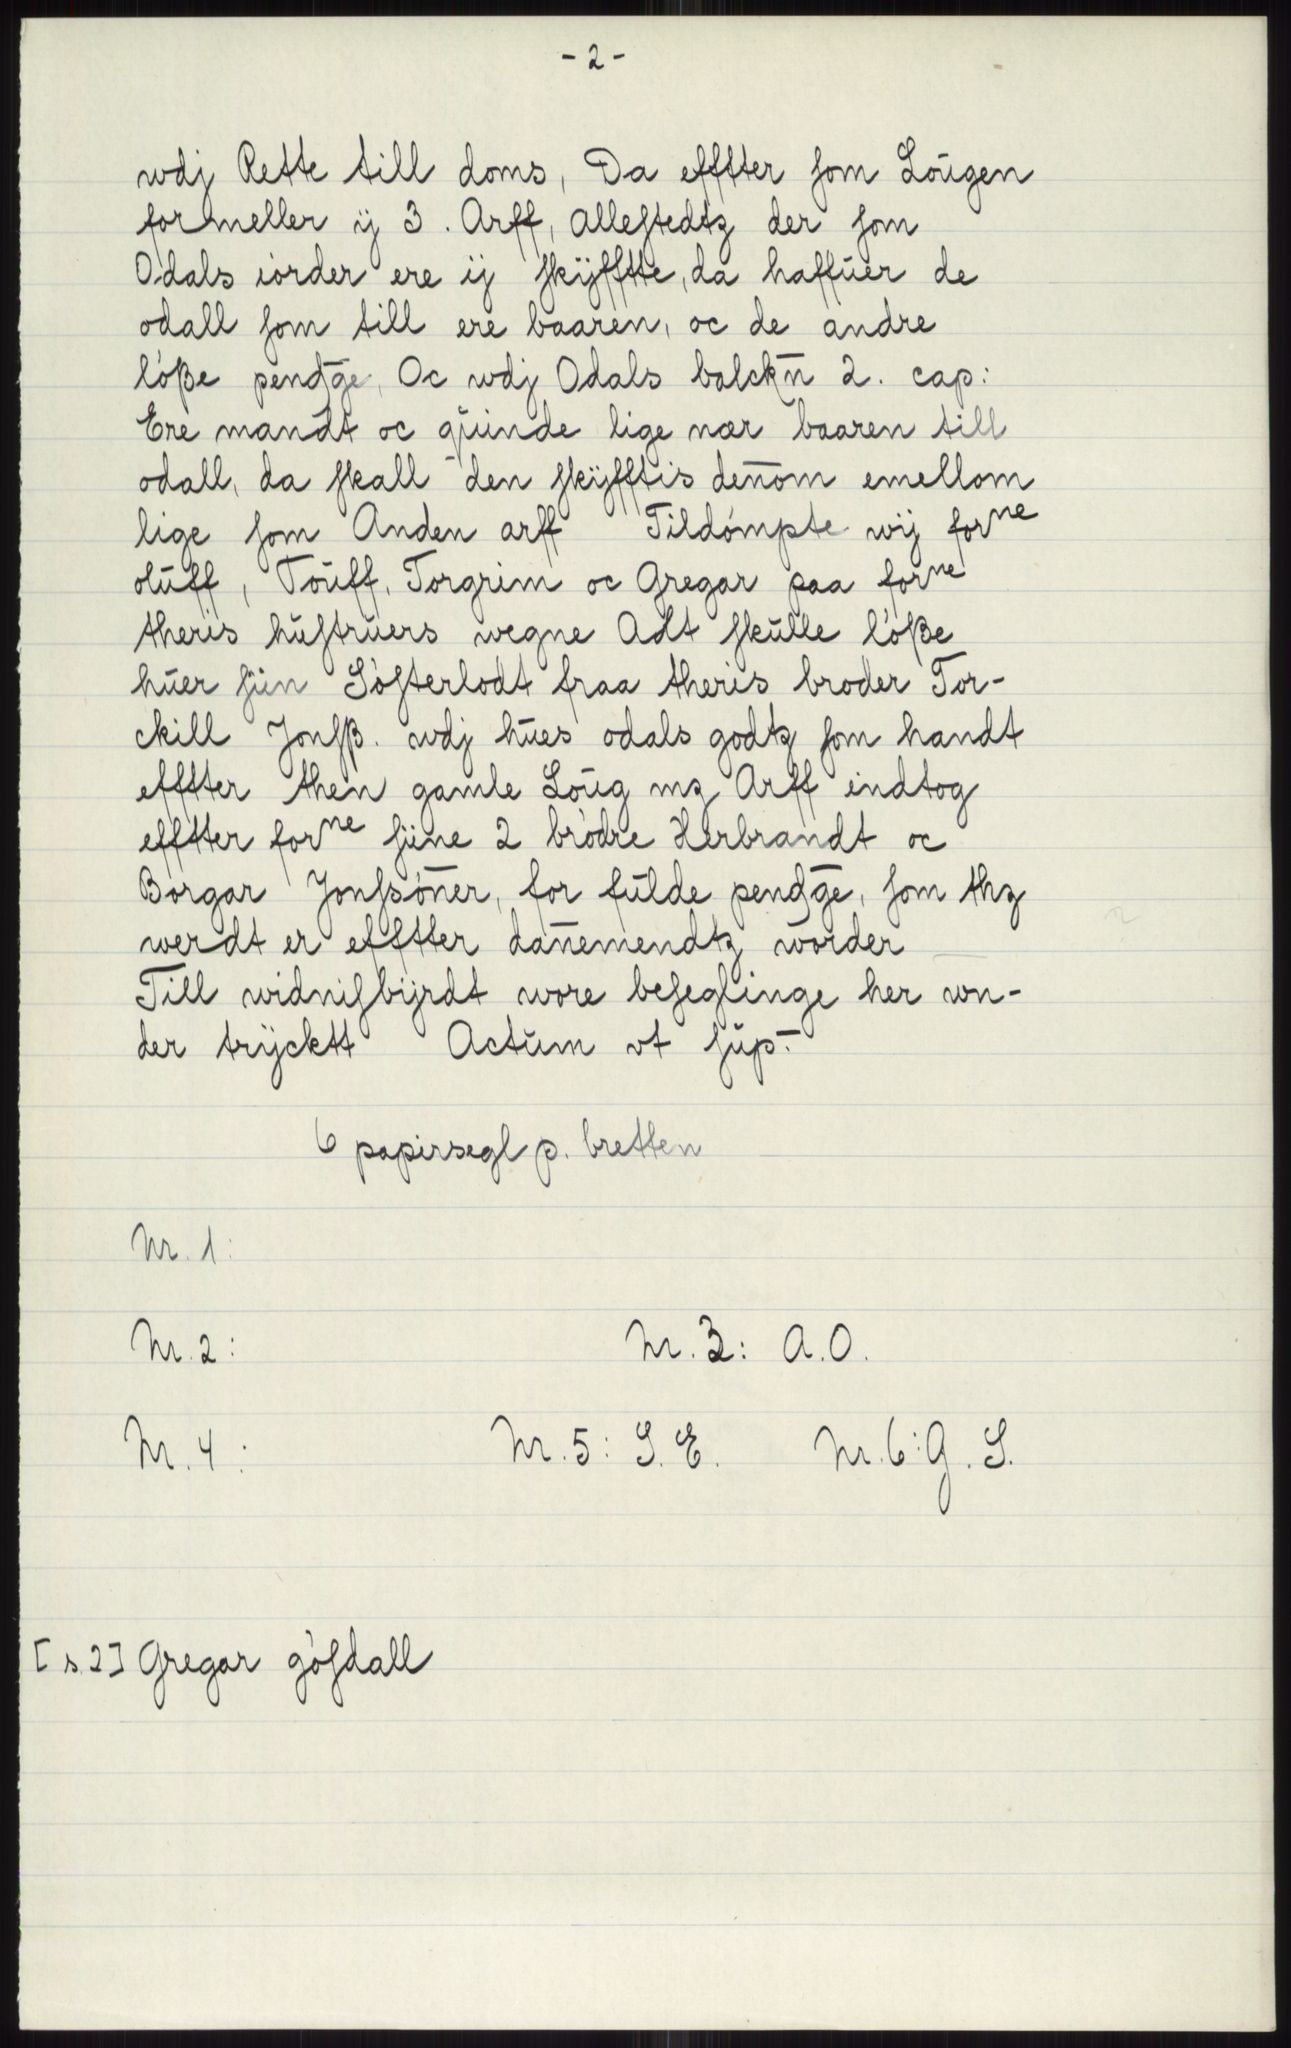 - 2 -
wdj Rette till doms, Da effter som Lougen
formeller ij 3. Arff, allestedtz der som
Odals iorder ere ij skÿfftte, da haffuer de
odall som till ere baaren, oc de andre
lóße pendḡe, Oc wdj Odals balckn̄ 2. cap:
Ere mandt oc quinde lige nær baaren till
odall, da skall den skÿfftis den̄om emellom
lige som Anden arff Tildómpte wij forne
oluff, Touff, Torgrim oc Gregar paa forne
theris hustruers wegne Adt skulle lóße
huer siin Sósterlodt fraa theris broder Tor-
ckill Jonsß. wdj hues odals godtz som handt
effter then gamle Loug mz Arff indtog
effter forne siine 2 bródre Herbrandt oc
Borgar Jonssón̄er, for fulde pendḡe, som thz
werdt er effter dan̄emendtz worder
Till widnisbÿrdt wore beseglinge her wn-
der trÿcktt Actum vt sup̄.
6 papirsegl p. bretten
Nr. 1:
Nr. 2: Nr. 3: A.O.
Nr. 4: Nr. 5: S. E. Nr. 6: G. S.
[s. 2] Gregar gósdall